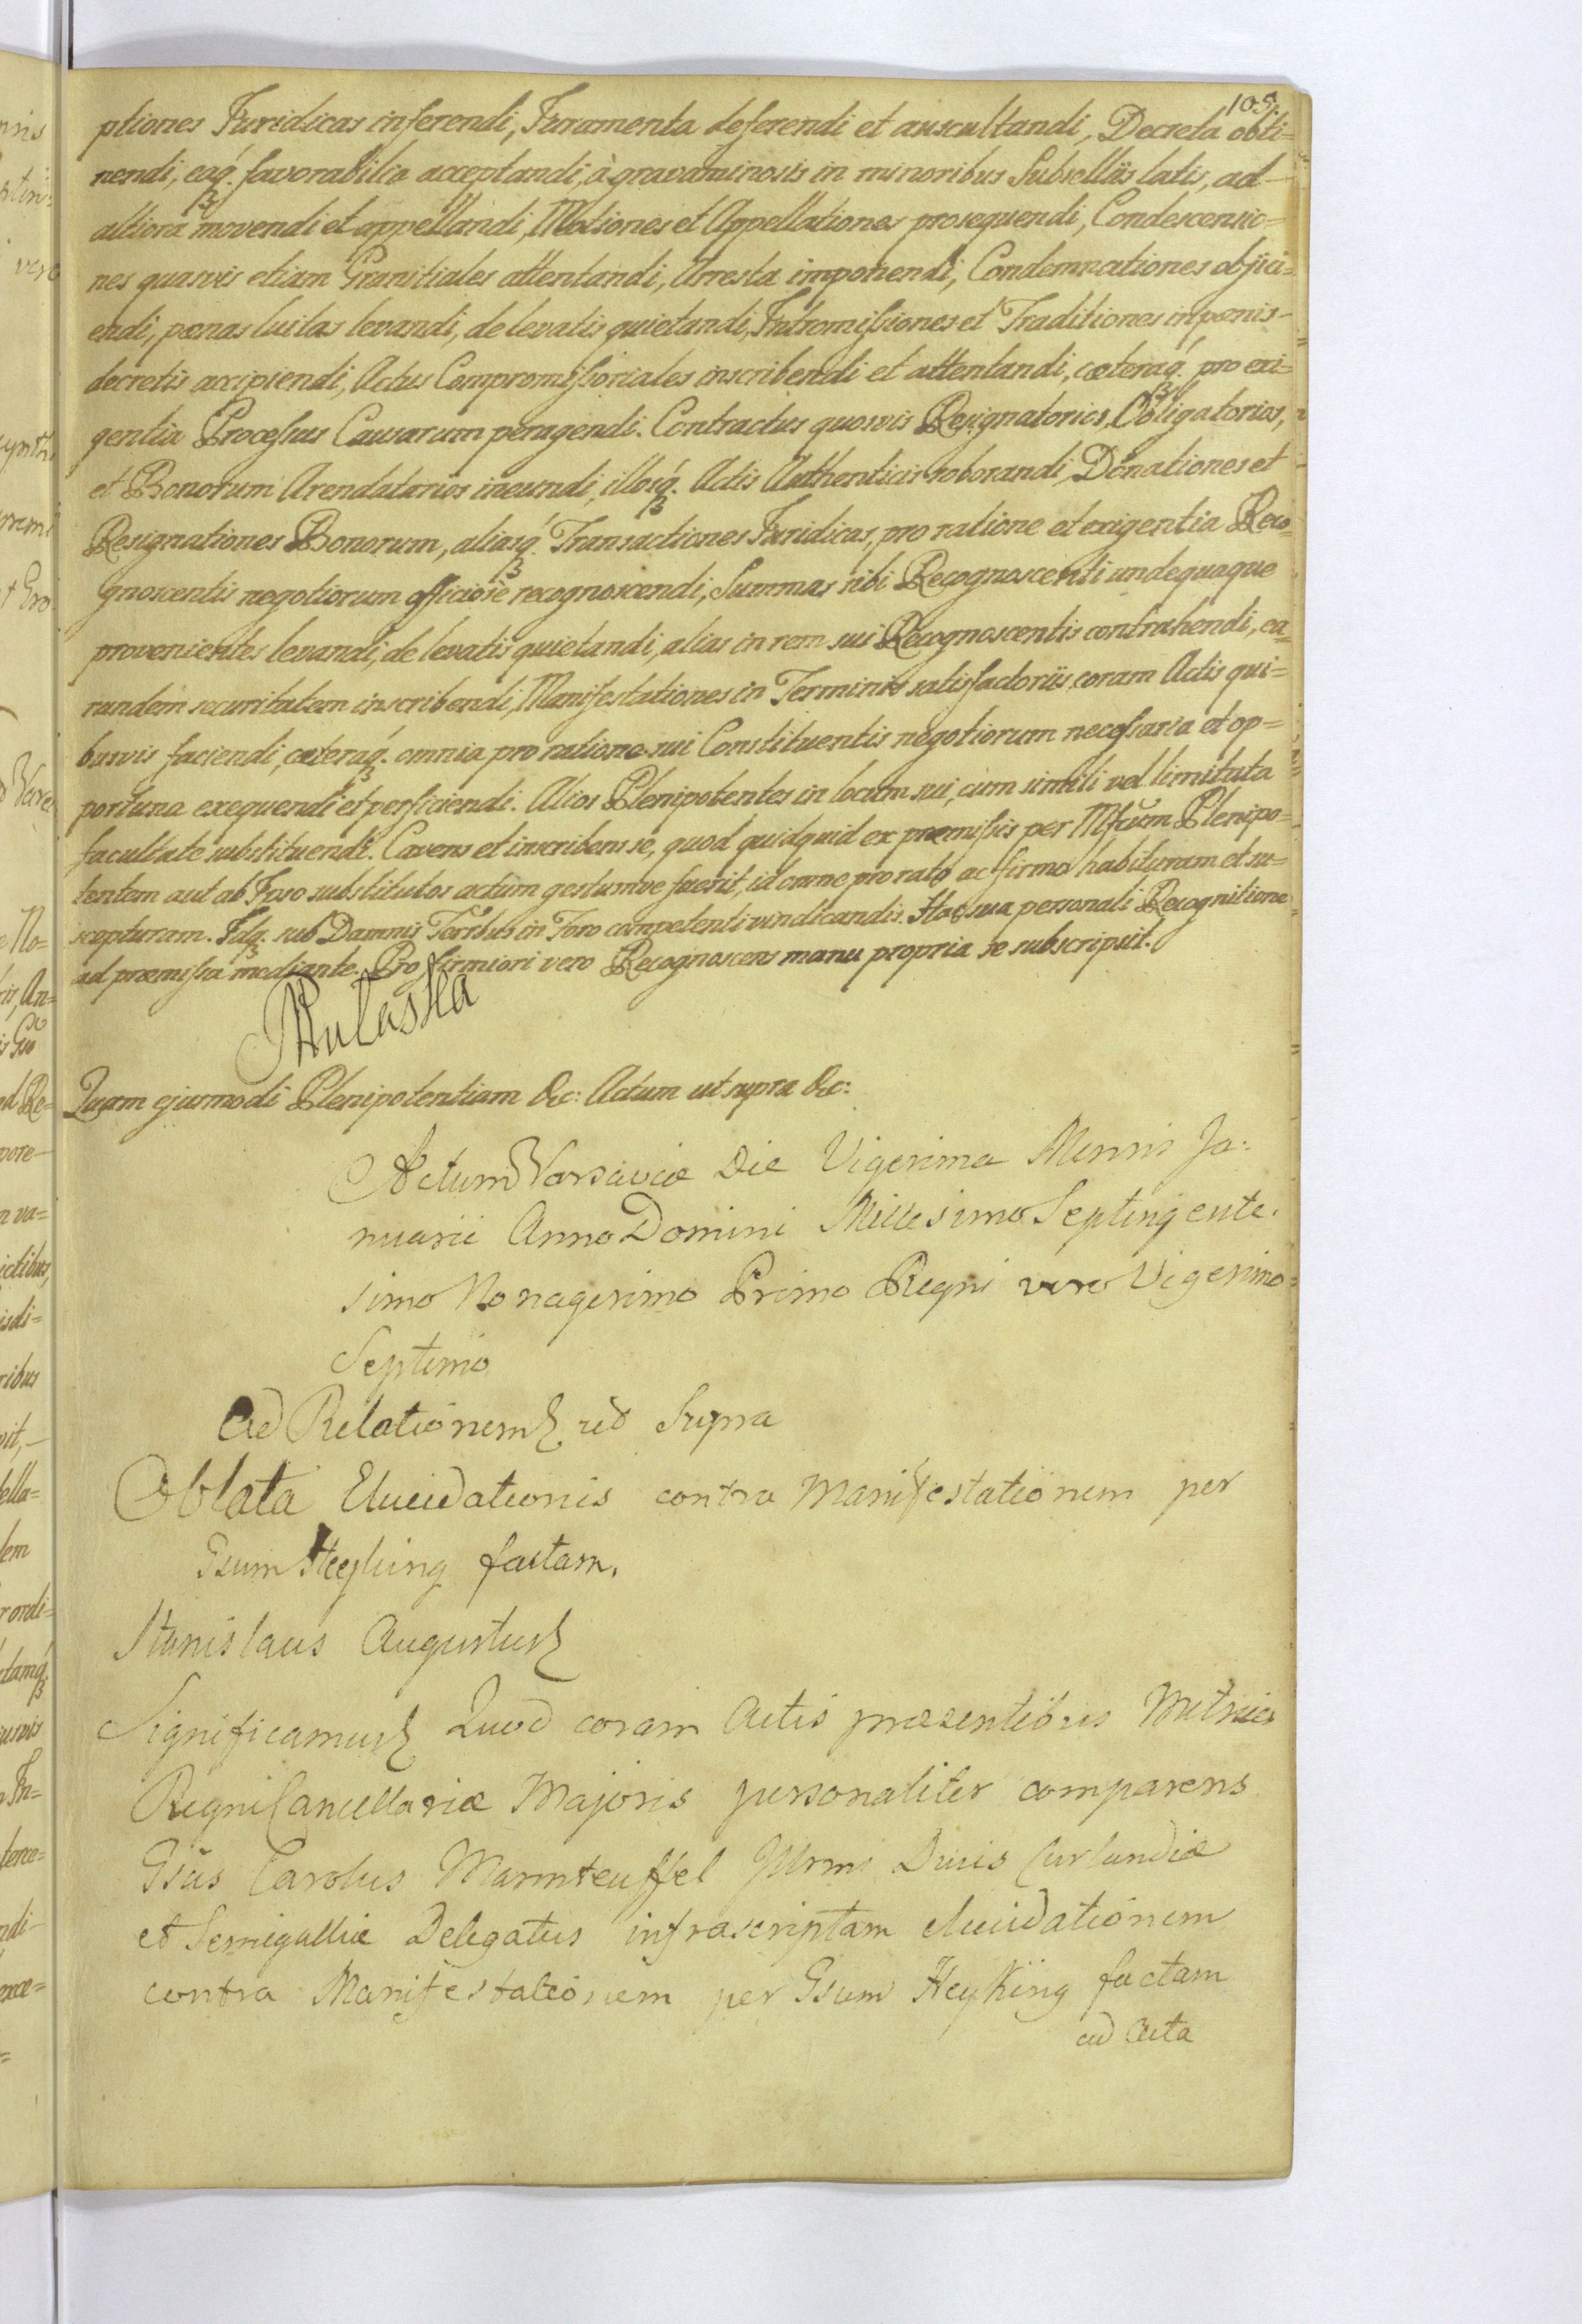 105
ptiones Juridicas inferendi, Juramenta deferendi et auscultandi, Decreta obti=
nendi, eaq́₃ favorabilia acceptandi, à gravaminosis in minoribus Subselliis latis, ad
altiora movendi et appellandi, Motiones et Appellationes prosequendi, Condescensio=
nes quasvis etiam Granitiales attentandi, Arresta imponendi, Condemnationes objici=
endi, pœnas luitas levandi, de levatis quietandi, Intromissiones et Traditiones in pœnis
decretis accipiendi, Actus Compromissoriales inscribendi et attentandi, cæteraq́₃ pro exi=
gentia Processus Causarum peragendi. Contractus quosvis Resignatorios, Obligatorios,
et Bonorum Arendatorios ineundi, illosq́₃ Actis Authenticis roborandi, Donationes et
Resignationes Bonorum, aliasq́₃ Transactiones Juridicas, pro ratione et exigentia Reco=
gnoscentis negotiorum officiose recognoscendi, Summas sibi Recognoscenti undequaque
provenientes levandi, de levatis quietandi, alias in rem sui Recognoscentis contrahendi, ea=
rundem securitatem inscribendi, Manifestationes in Terminis satisfactoriis coram Actis qui=
busvis faciendi, cæteraq́₃ omnia pro ratione sui Constituentis negotiorum necessaria et op=
portuna exequendi et perficiendi. Alios Plenipotentes in locum sui, cum simili vel limitata
facultate substituendi. Cavens et inscribens se, quod quidquid ex præmissis per Mfcum Plenipo=
tentem aut ab Ipso substitutos actum gestumve fuerit, id omne pro rato ac firmo habituram et su=
scepturam. Idq́₃ sub Damnis Terrībus in Foro competenti vindicandis. Hac sua personali Recognitione
ad præmissa mediante. Pro firmiori vero Recognoscens manu propria se subscripsit.
Quam ejusmodi Plenipotentiam &c: Actum ut supra &c:
Actum Varsaviæ Die Vigesima Mensis Ja=
nuarii Anno Domini Millesimo Septingente=
simo Nonagesimo Primo Regni vero Vigesimo=
Septimo
Ad Relationem ut Supra
Oblata Elucidationis contra Manifestationem per
Gsum Heyking factam.
Stanislaus Augustus
Significamus Quod coram Actis præsentibus Metrices
Regni Cancellariæ Majoris personaliter comparens
Gsus Carolus Mannteuffel Illrmi Ducis Curlandiæ
et Semigalliæ Delegatus infrascriptam elucidationem
contra Manifestationem per Gsum Heyking factam
ad Acta